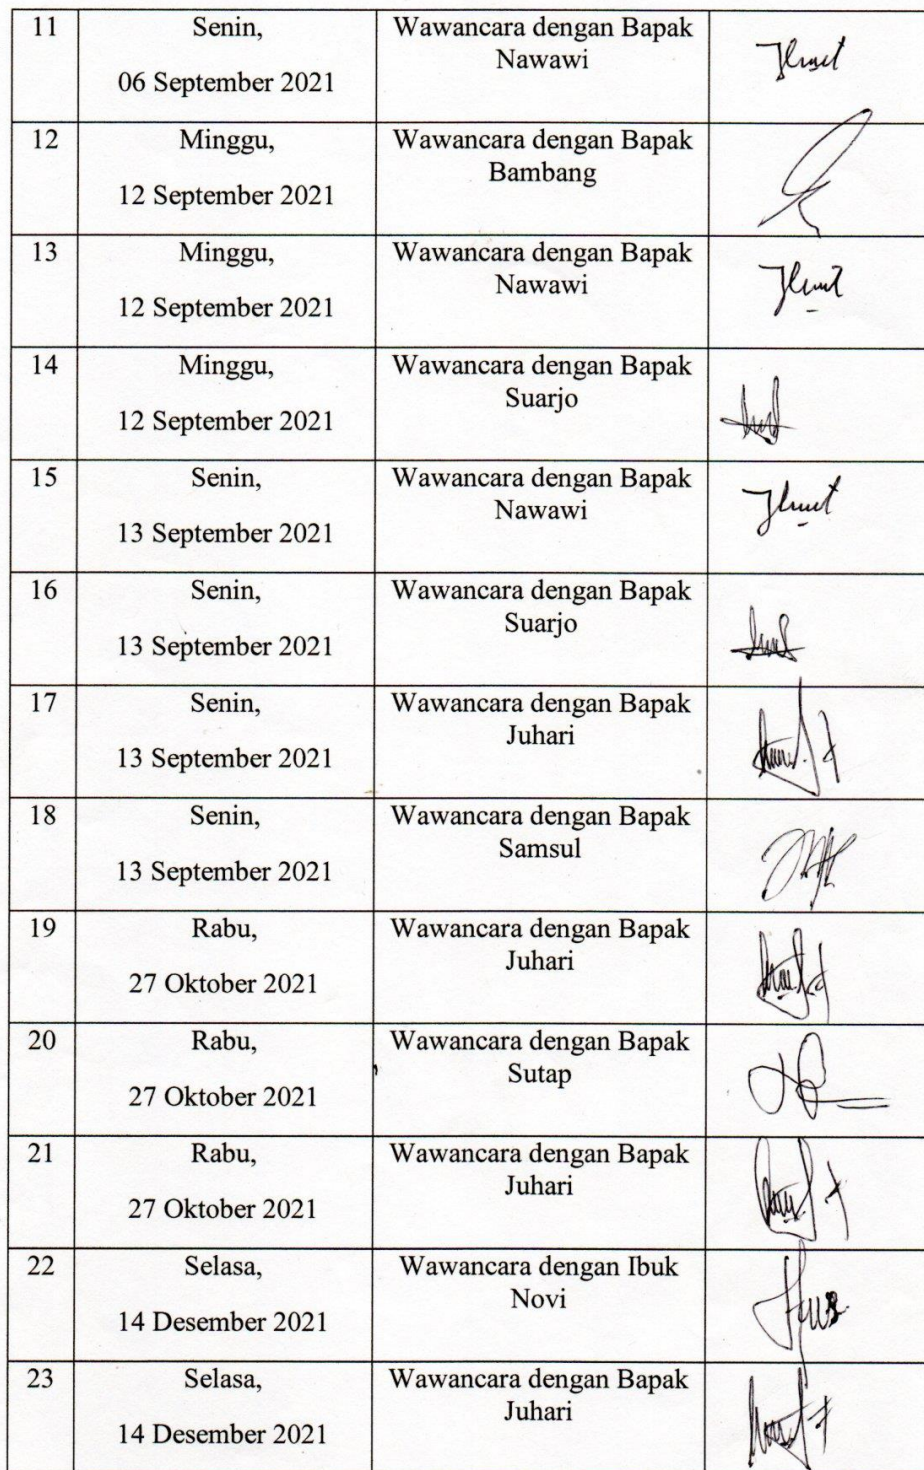 11
Senin,
06 September 2021
Wawancara dengan Bapak
Nawawi
12
Minggu,
12 September 2021
Wawancara dengan Bapak
Bambang
13
Minggu,
12 September 2021
Wawancara dengan Bapak
Nawawi
14
Minggu,
12 September 2021
Wawancara dengan Bapak
Suarjo
15
Senin,
13 September 2021
Wawancara dengan Bapak
Nawawi
16
Senin,
13 September 2021
Wawancara dengan Bapak
Suarjo
17
Senin,
13 September 2021
Wawancara dengan Bapak
Juhari
18
Senin,
13 September 2021
Wawancara dengan Bapak
Samsul
19
Rabu,
27 Oktober 2021
Wawancara dengan Bapak
Juhari
20
Rabu,
27 Oktober 2021
Wawancara dengan Bapak
Sutap
21
Rabu,
27 Oktober 2021
Wawancara dengan Bapak
Juhari
22
Selasa,
14 Desember 2021
Wawancara dengan Ibuk
Novi
23
Selasa,
14 Desember 2021
Wawancara dengan Bapak
Juhari